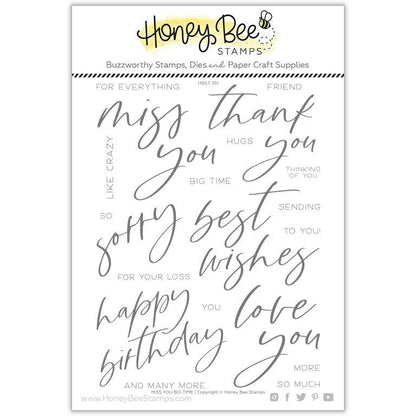 Honey Bee
STAMPS
Buzzworthy Stamps, Dies and Paper Craft Supplies
FOR EVERYTHING
HBST-351
FRIEND
miss thank
you you
LIKE CRAZY
HUGS
THINKING
OF YOU
BIG TIME
SO
SENDING
sorry best
wishes
TO YOU!
FOR YOUR LOSS
happy
birthday
YOU
love
you
MORE
AND MANY MORE
SO MUCH
MISS YOU BIG TIME | Copyright © Honey Bee Stamps
www.HoneyBeeStamps.com